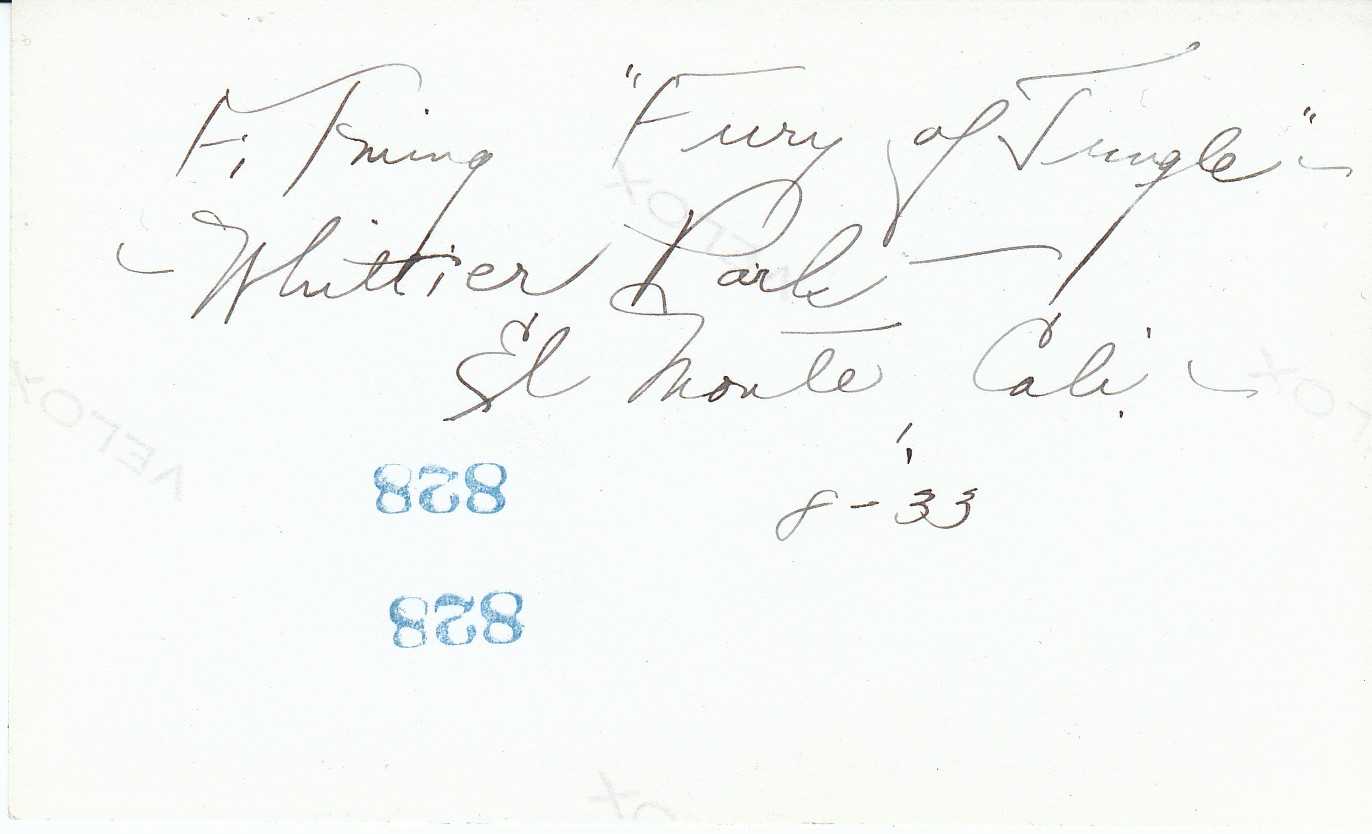 Filming "Fury of Jungle"
Whittier Park
El Monte, Cali.
8-33
828
828
VELOX
VELOX